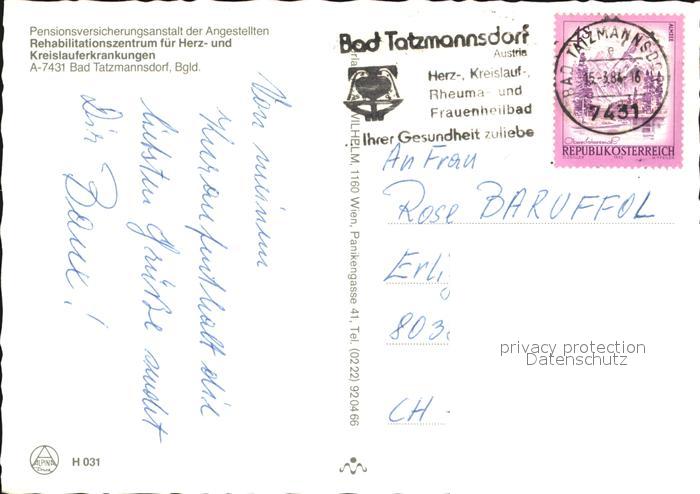 Pensionsversicherungsanstalt der Angestellten
Rehabilitationszentrum für Herz- und
Kreislauferkrankungen
A-7431 Bad Tatzmannsdorf, Bgld.
Von meinem
Kuraufenthalt die
liebsten Grüße sendet
Dir
H 031
WILHELM, 1160 Wien, Panikengasse 41, Tel. (0222) 920466
Bad Tatzmannsdorf
Austria
Herz-, Kreislauf-,
Rheuma- und
Frauenheilbad
Ihrer Gesundheit zuliebe
BAD TATZMANNSDORF
15.-3.84-16
7431
REPUBLIK ÖSTERREICH
An Frau
Rose BARUFFOL
Erli
803
CH -
privacy protection
Datenschutz
ALPINA